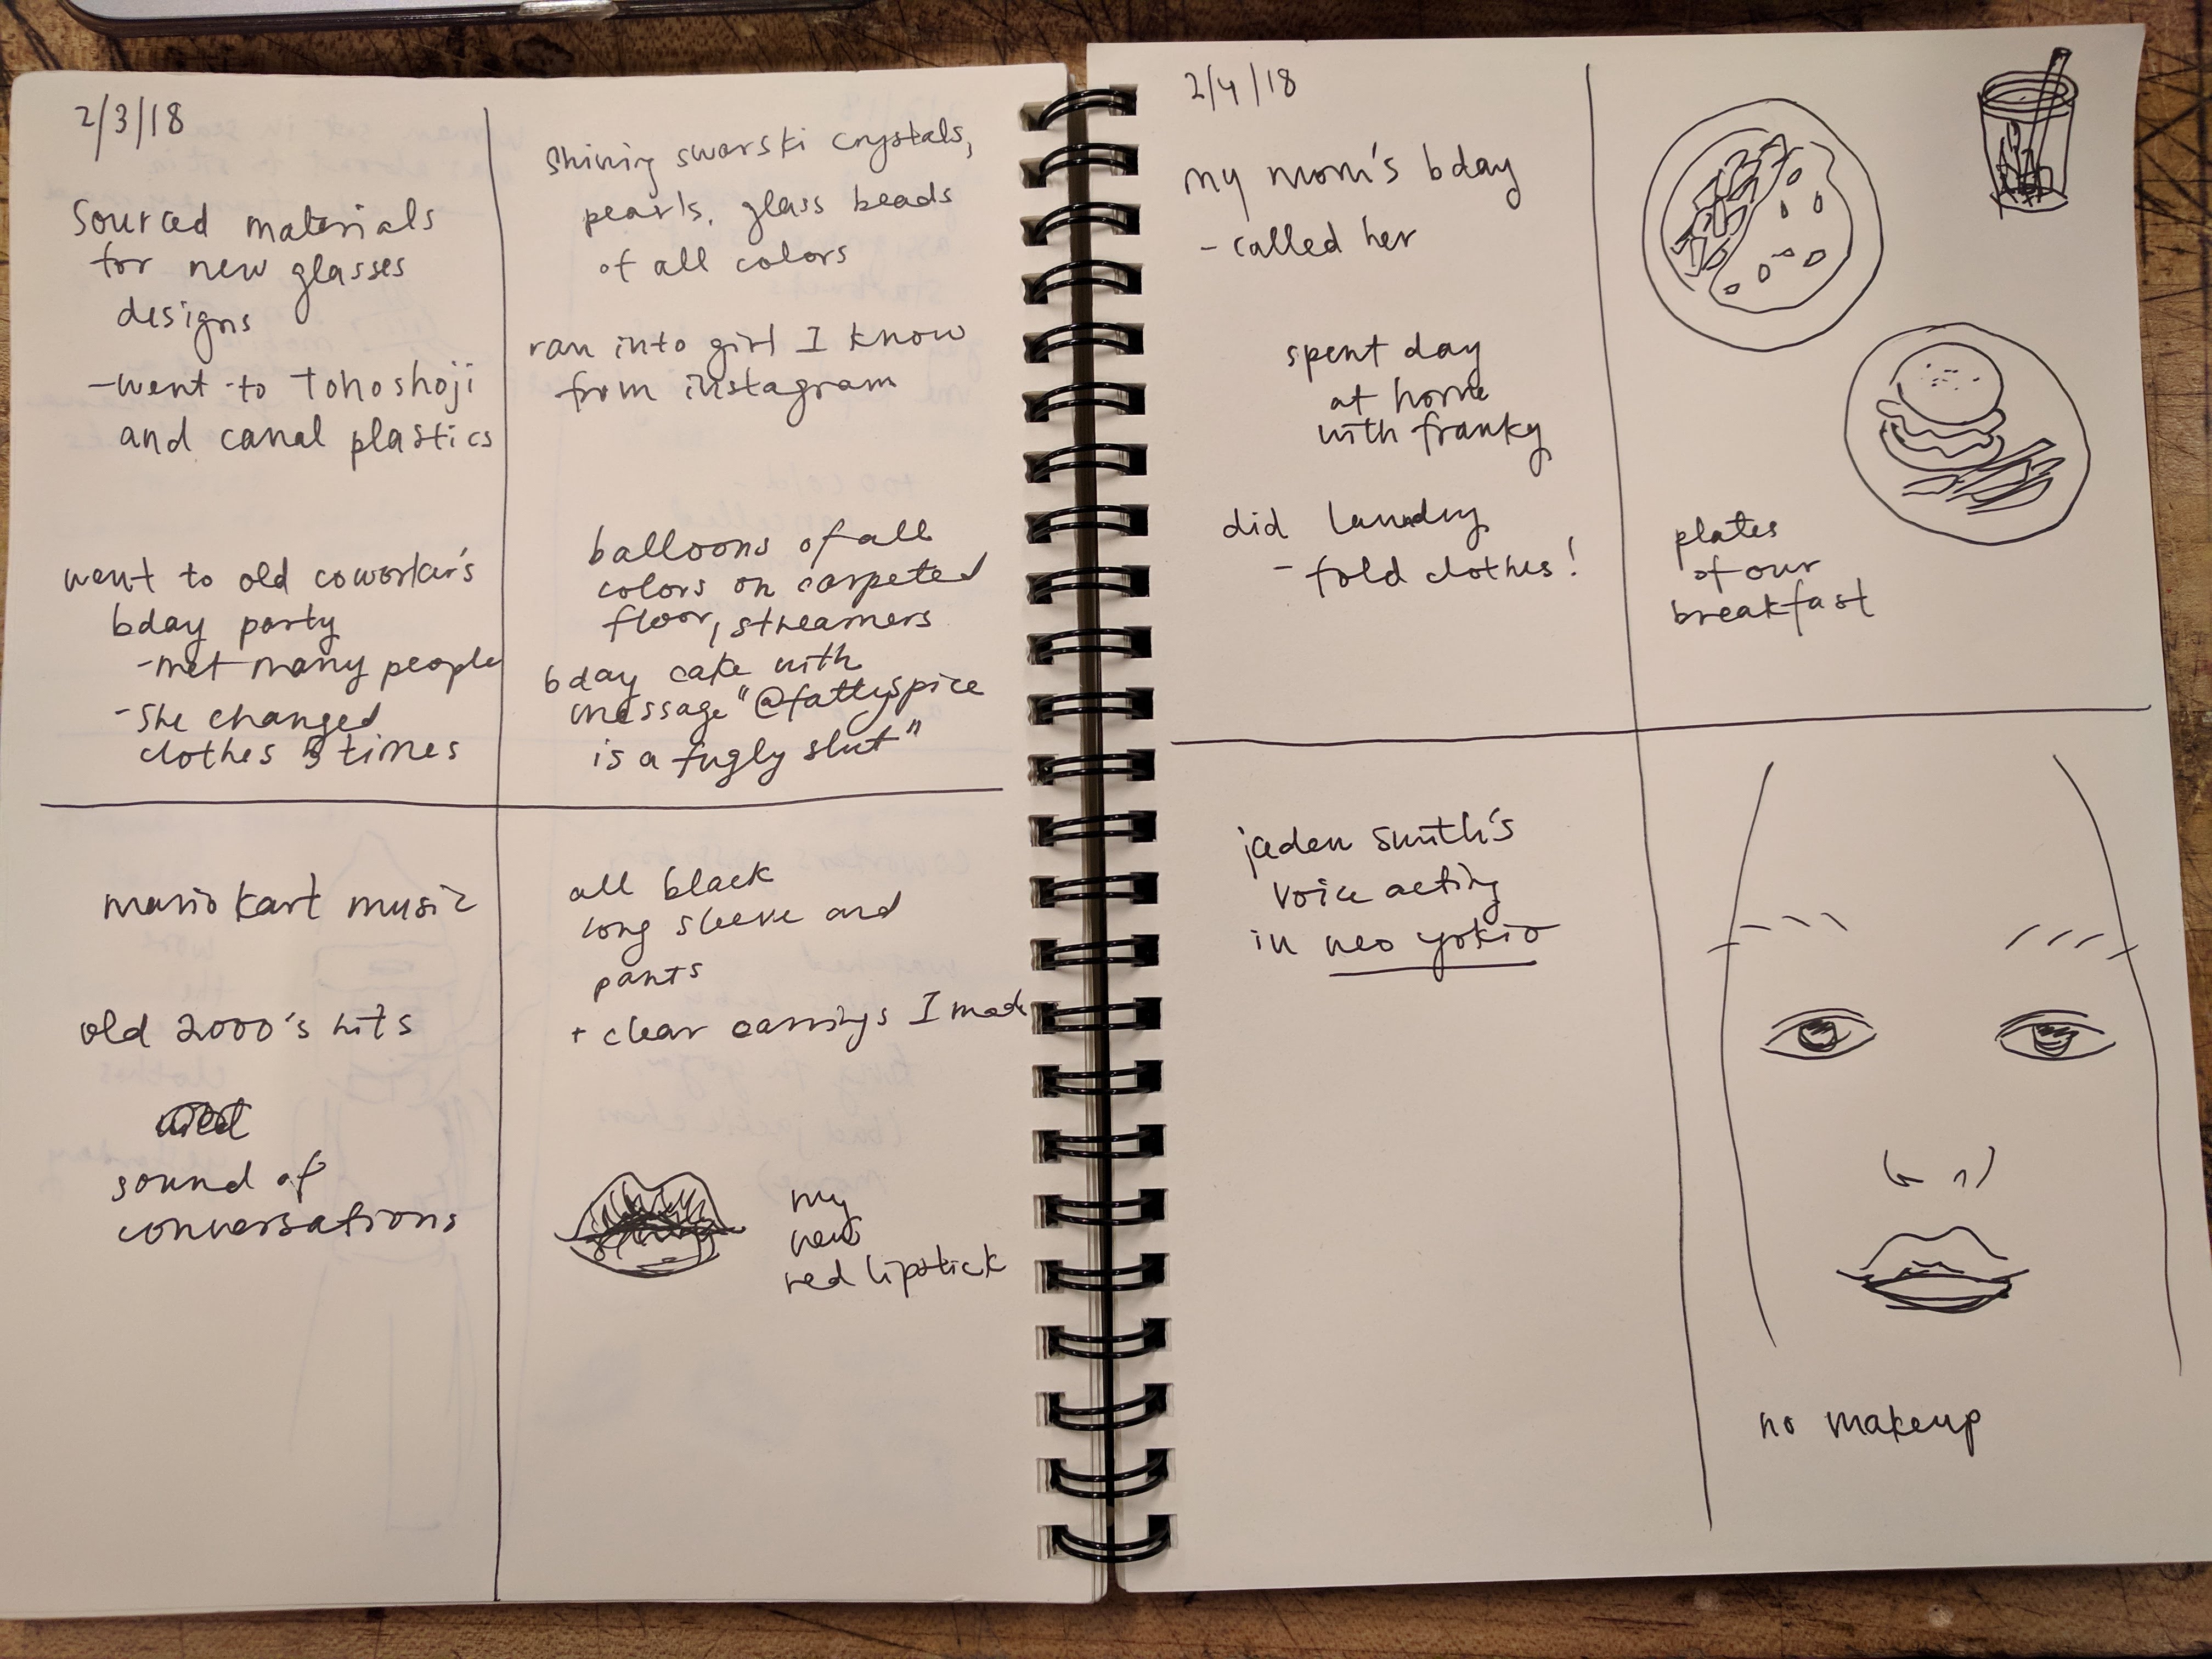 2/3/18
Sourced materials
for new glasses
designs
-went to Tohoshoji
and canal plastics
went to old coworker's
bday party
-met many people
-she changed
clothes 5 times
Shining swarski crystals,
pearls, glass beads
of all colors
ran into girl I know
from instagram
balloons of all
colors on carpeted
floor, streamers
bday cake with
message "@fattyspice
is a fugly slut"
mario kart music
old 2000's hits
sound of
conversations
all black
long sleeve and
pants
+ clear earrings I made
my
new
red lipstick
2/4/18
my mom's bday
- called her
spent day
at home
with franky
did laundry
- fold clothes!
plates
of our
breakfast
jaden smith's
voice acting
in neo yokio
no makeup